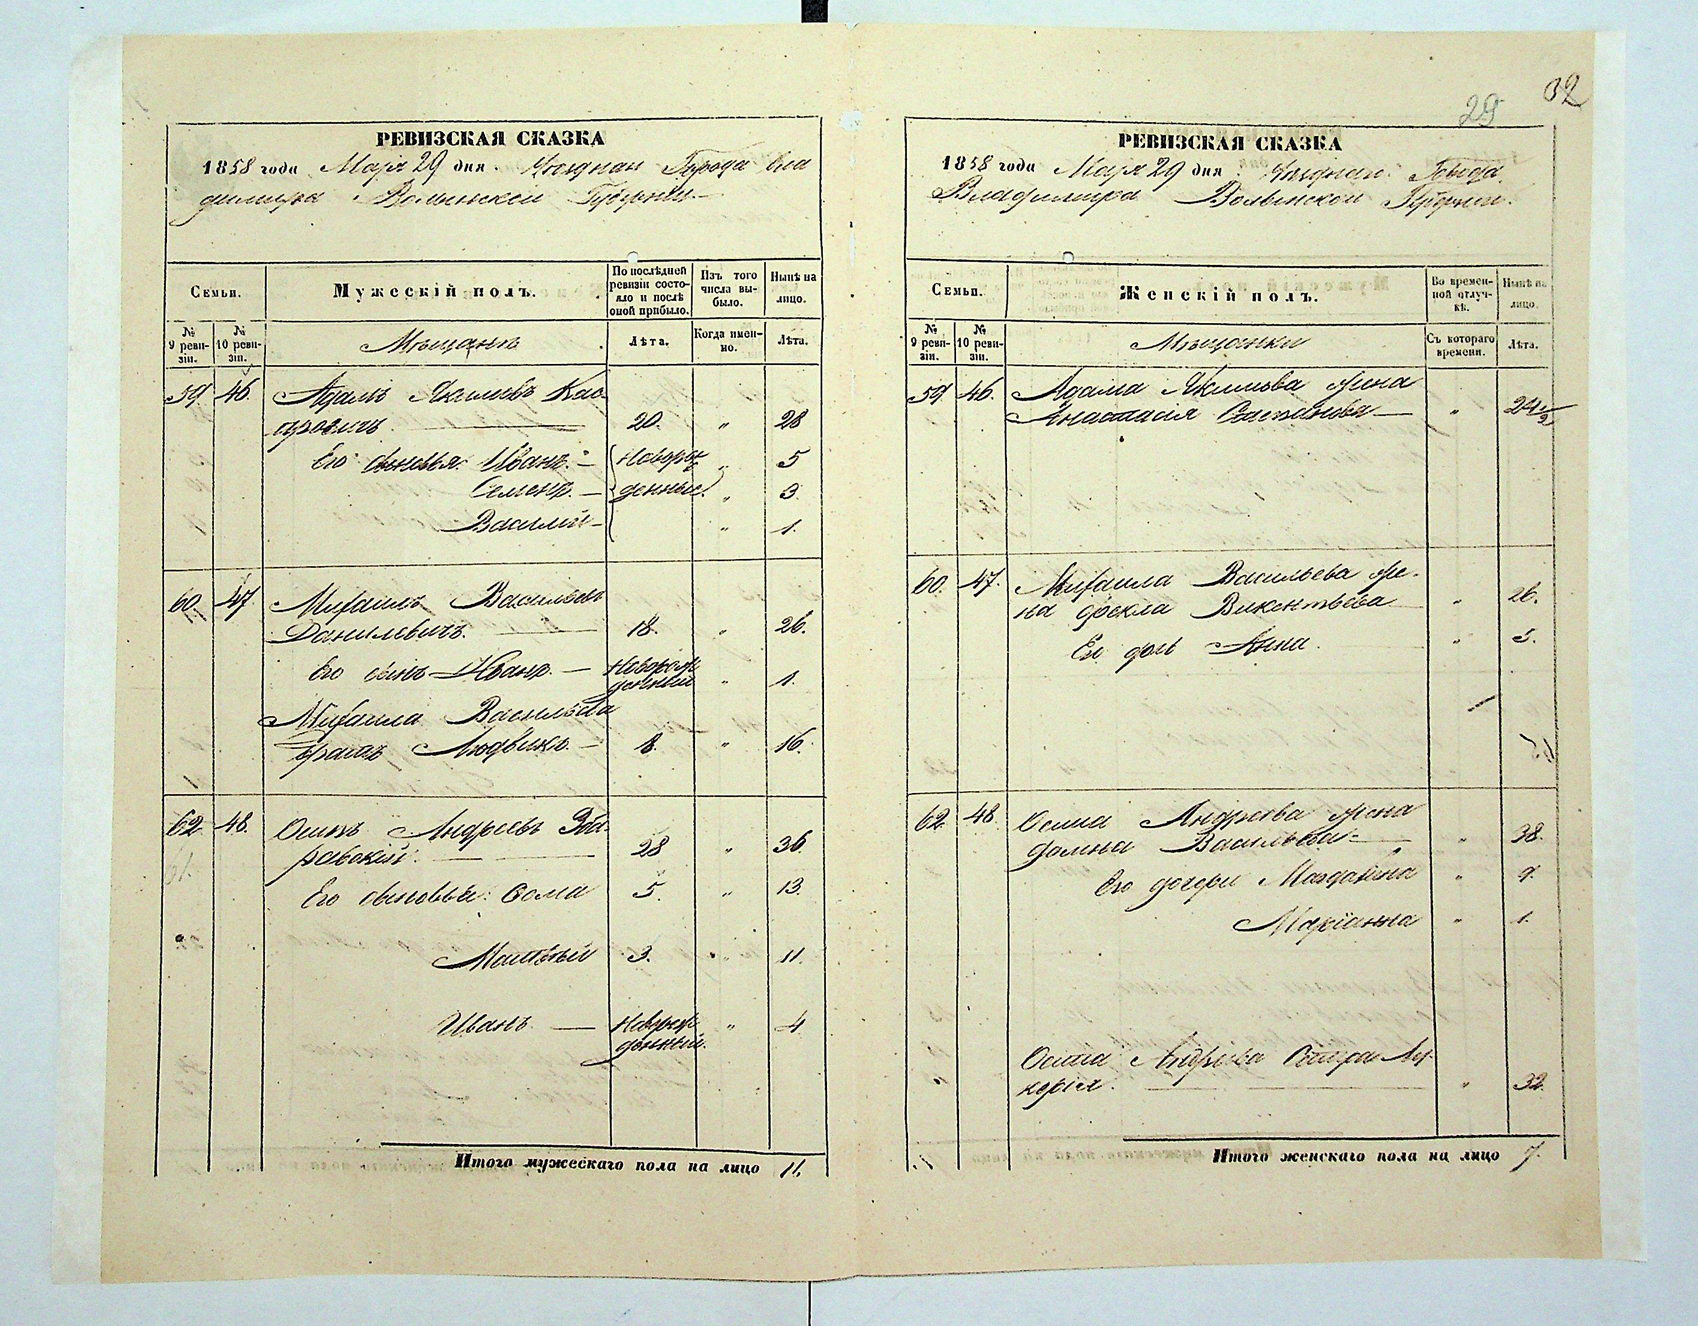 32
29
РЕВИЗСКАЯ СКАЗКА
1858 года Марта 29 дня. Города Вла
димира Волынской Губернии.
Семьи.
Мужескій полъ.
По послѣдней ревизіи состояло и послѣ оной прибыло.
Изъ того числа выбыло.
Нынѣ на лицо.
№ 9 ревизіи.
№ 10 ревизіи.
Мѣщанъ
Лѣта.
Когда именно.
Лѣта.
59. 46. Адамъ Якимовъ
20. " 28
Его сыновья Иванъ. — Новорож " 5
Семенъ. — денные. " 3.
Василій — " 1.
60. 47. Михаилъ Васильевъ
Данилевичъ. — 18. " 26.
Его сынъ Иванъ. — Новорож
денный " 1.
Михаила Васильева
братъ Людвикъ. — 8. " 16.
62. 48. Осипъ Андреевъ Зба-
ражскій. — 28 " 36
61.
Его сыновья: Фома 5. " 13.
Матвѣй 3. " 11.
Иванъ. — Новорож
денный. " 4
Итого мужескаго пола на лицо 11.
РЕВИЗСКАЯ СКАЗКА
1858 года Марта 29 дня. Города
Владимира Волынской Губернии.
Семьи.
Женскій полъ.
Во временной отлучкѣ.
Нынѣ на лицо.
№ 9 ревизіи.
№ 10 ревизіи.
Мѣщанки
Съ котораго времени.
Лѣта.
59. 46. Адама Якимова жена
Анастасія — " 24½
60. 47. Михаила Васильева же-
на Фекла Викентьева " 26.
Его дочь Анна. " 5.
62. 48. Осипа Андреева жена
Домна Васильева — " 38.
Его дочери Магдалина " 9.
Маріанна " 1.
Осипа Андреева сестра Лу-
керія. — " 32.
Итого женскаго пола на лицо 7.